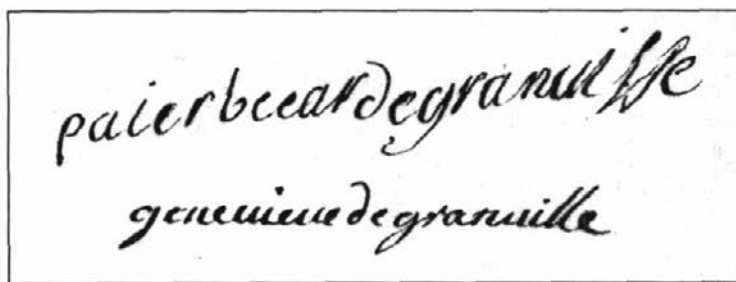 paierbecardegranuille
geneuieuedegranuille